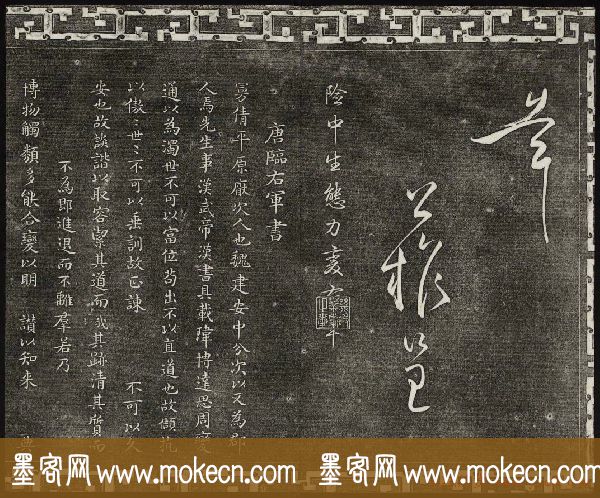 險中生態力
唐臨右軍書
曼倩平原厭次人也魏建安中分次以又為郡
人焉先生事漢武帝漢書具載瑋博達思周變
通以為濁世不可以富位苟出不以直道也故頡抗
以傲世〻不可以垂訓故正諫 不可以久
安也故談諧以取容潔其道而穢其跡清其質而
不為耶進退而不離羣若乃
博物觸類多能合變以明 讚以知来
墨客网 www.mokecn.com 墨客网 www.mokecn.com